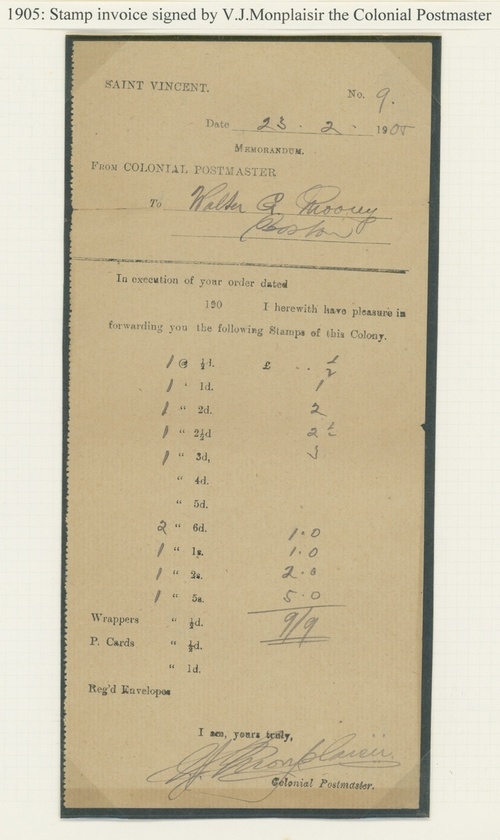 1905: Stamp invoice signed by V.J.Monplaisir the Colonial Postmaster
SAINT VINCENT.
No. 9.
Date 23 . 2 . 1905
MEMORANDUM.
FROM COLONIAL POSTMASTER
To Walter E. Mooney
Boston
In execution of your order dated
190 I herewith have pleasure in
forwarding you the following Stamps of this Colony.
1 @ ½d. £ .. ½
1 " 1d. 1
1 " 2d. 2
1 " 2½d 2½
1 " 3d, 3
" 4d.
" 5d.
2 " 6d. 1.0
1 " 1s. 1.0
1 " 2s. 2.0
1 " 5s. 5.0
Wrappers " ½d. 9/9
P. Cards " ½d.
" 1d.
Reg'd Envelopes
I am, yours truly,
V.J. Monplaisir.
Colonial Postmaster.